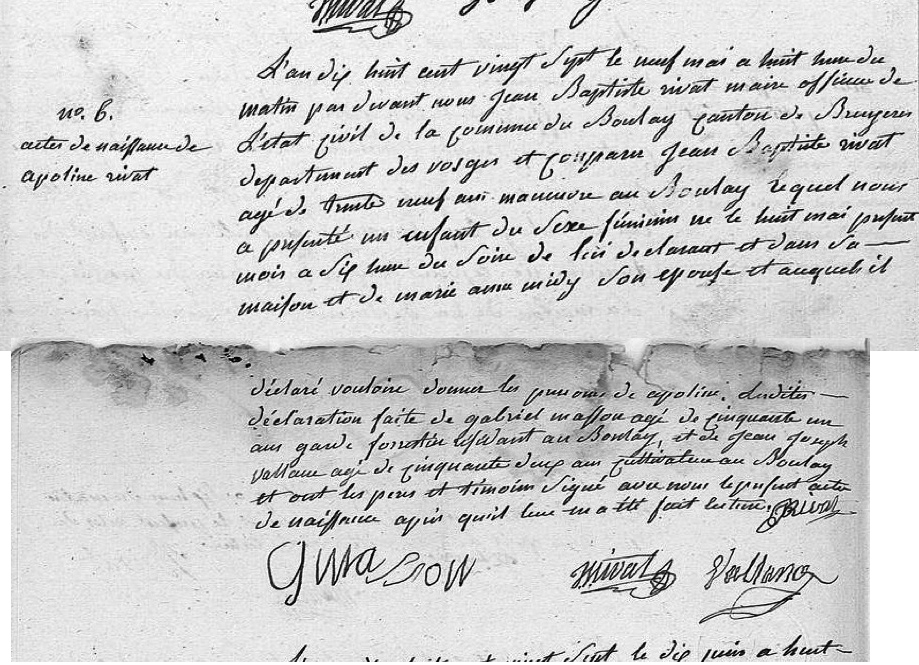 rivat
no. 6.
actes de naissance de
apoline rivat
L'an dix huit cent vingt Sept le neuf mai a huit heure du
matin par devant nous Jean Baptiste rivat maire officier de
L'état Civil de la commune du Boulay Canton de Bruyeres
departement des vosges est comparu Jean Baptiste rivat
agé de trente neuf ans manuvre au Boulay lequel nous
a présenté un enfant du Sexe féminin ne le huit mai présent
mois a Six heure du Soire de lui déclarant et dans Sa —
maison et de marie anne midy Son epouse et auquel il
déclaré vouloire donner les prenoms de apoline. Lesdites —
déclaration faite de gabriel masson agé de Cinquante un
ans garde forestier résidant au Boulay, et de Jean Joseph
vallance agé de Cinquante deux ans Cultivateur au Boulay
et ont les pere et témoins Signé avec nous le présent acte
de naissance après qu'il leur en a été fait lecture. JBRivat
G masson rivat Vallance
L'an dix huit cent vingt Sept le dix juin a huit